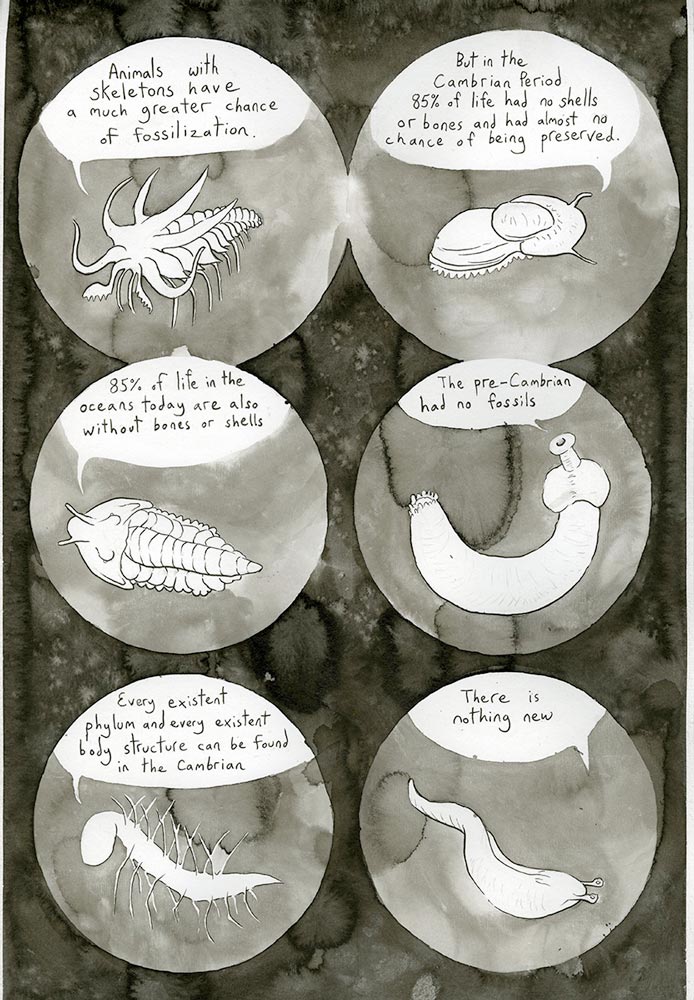 Animals with
skeletons have
a much greater chance
of fossilization.
But in the
Cambrian Period
85% of life had no shells
or bones and had almost no
chance of being preserved.
85% of life in the
oceans today are also
without bones or shells
The pre-Cambrian
had no fossils
Every existent
phylum and every existent
body structure can be found
in the Cambrian
There is
nothing new